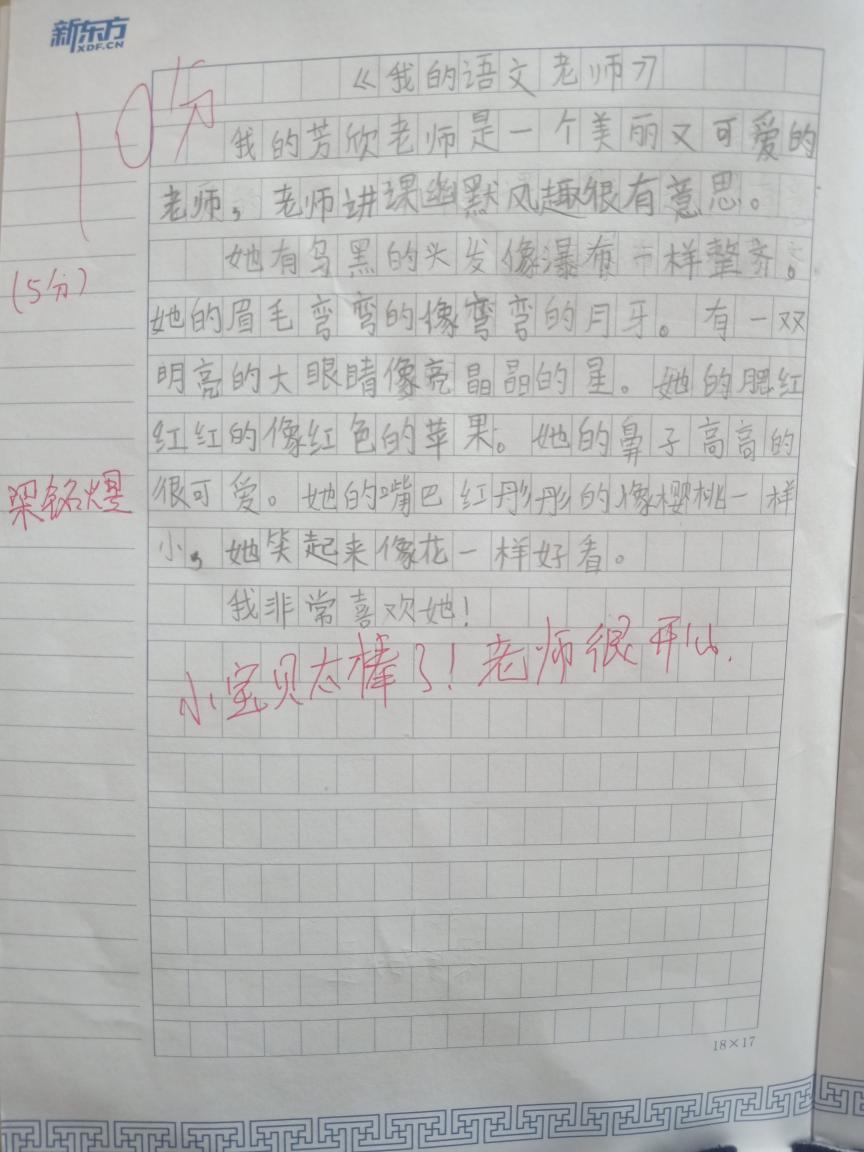 新东方
XDF.CN
10分
《我的语文老师》
我的芳欣老师是一个美丽又可爱的
老师，老师讲课幽默风趣很有意思。
她有乌黑的头发像瀑布一样整齐。
(5分)
她的眉毛弯弯的像弯弯的月牙。有一双
明亮的大眼睛像亮晶晶的星。她的腮红
红红的像红色的苹果。她的鼻子高高的
梁铭煜
很可爱。她的嘴巴红彤彤的像樱桃一样
小，她笑起来像花一样好看。
我非常喜欢她！
小宝贝太棒了！老师很开心.
18×17